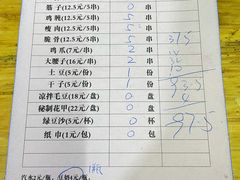 筋子(12.5元/5串) 0 串
鸡肫(12.5元/5串) 5 串
瘦肉(12.5元/5串) 5 串
脆骨(12.5元/5串) 5 串 375
鸡爪(7元/串) 2 串
大腰子(16元/串) 2 串
土豆(5元/份) 1 份
干子(5元/份) 1 份
凉拌毛豆(18元/盘) 0 盘
秘制花甲(22元/盘) 0 盘
绿豆沙(5元/杯) 0 杯 97.5
纸巾(1元/包) 0 包
1瓶
汽水2元/瓶，豆奶4元/瓶